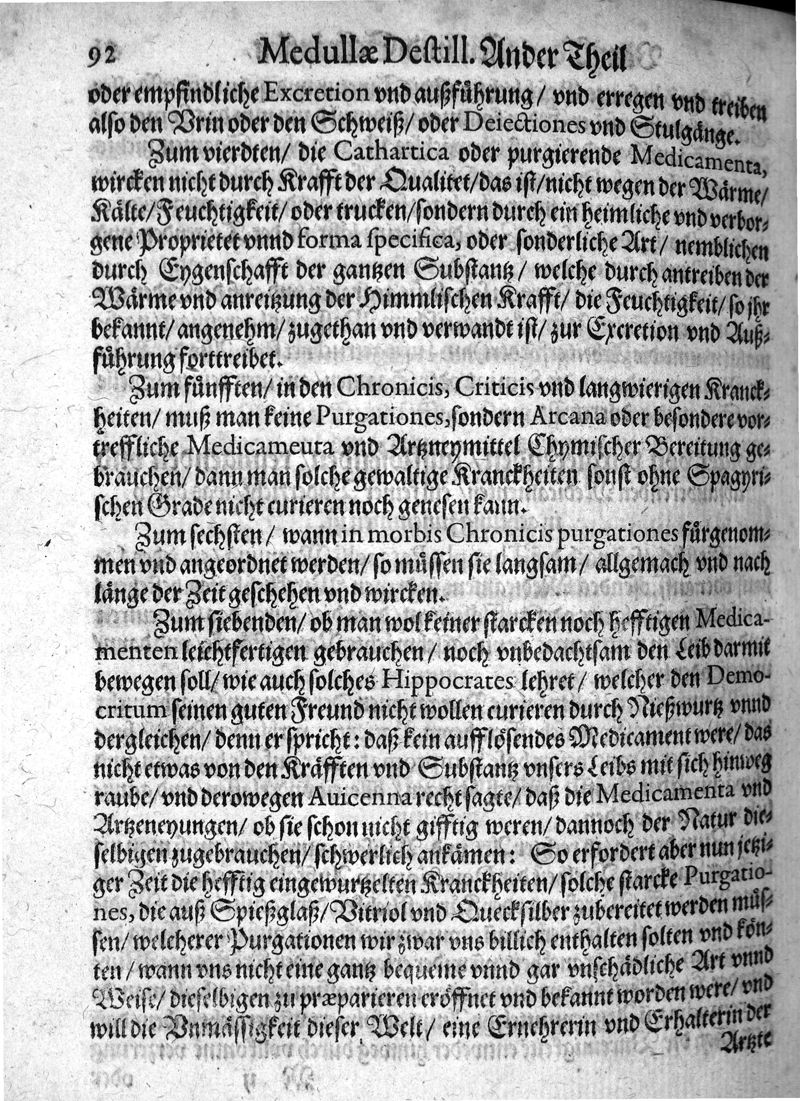 92 Medullæ Destill. Ander Theil
oder empfindliche Excretion vnd außführung/ vnd erregen vnd treiben
also den Vrin oder den Schweiß/ oder Deiectiones vnd Stulgänge.
Zum vierdten/ die Cathartica oder purgierende Medicamenta,
wircken nicht durch Krafft der Qualitet/das ist/nicht wegen der Wärme/
Kälte/Feuchtigkeit/ oder trucken/sondern durch ein heimliche vnd verbor-
gene Proprietet vnnd forma specifica, oder sonderliche Art/ nemblichen
durch Eygenschafft der gantzen Substantz/ welche durch antreiben der
Wärme vnd anreitzung der Himmlischen Krafft/ die Feuchtigkeit/ so jhr
bekannt/ angenehm/ zugethan vnd verwandt ist/ zur Excretion vnd Auß-
führung forttreibet.
Zum fünfften/ in den Chronicis, Criticis vnd langwierigen Kranck-
heiten/ muß man keine Purgationes,sondern Arcana oder besondere vor-
treffliche Medicameuta vnd Artzneymittel Chymischer Bereitung ge-
brauchen/ dann man solche gewaltige Kranckheiten sonst ohne Spagyri-
schen Grade nicht curieren noch genesen kann.
Zum sechsten/ wann in morbis Chronicis purgationes fürgenom-
men vnd angeordnet werden/ so müssen sie langsam/ allgemach vnd nach
länge der Zeit geschehen vnd wircken.
Zum siebenden/ ob man wol keiner starcken noch hefftigen Medica-
menten leichtfertigen gebrauchen/ noch vnbedachtsam den Leib darmit
bewegen soll/ wie auch solches Hippocrates lehret/ welcher den Demo-
critum seinen guten Freund nicht wollen curieren durch Nießwurtz vnnd
dergleichen/ denn er spricht: daß kein aufflösendes Medicament were/ das
nicht etwas von den Kräfften vnd Substantz vnsers Leibs mit sich hinweg
raube/ vnd derowegen Auicenna recht sagte/ daß die Medicamenta vnd
Artzeneyungen/ ob sie schon nicht gifftig weren/ dannoch der Natur die-
selbigen zugebrauchen/ schwerlich ankämen: So erfordert aber nun jetzi-
ger Zeit die hefftig eingewurtzelten Kranckheiten/ solche starcke Purgatio-
nes, die auß Spießglaß/ Vitriol vnd Quecksilber zubereitet werden müs-
sen/ welcherer Purgationen wir zwar vns billich enthalten solten vnd kön-
ten/ wann vns nicht eine gantz bequeme vnnd gar vnschädliche Art vnnd
Weise/ dieselbigen zu præparieren eröffnet vnd bekannt worden were/ vnd
will die Vnmässigkeit dieser Welt/ eine Ernehrerin vnd Erhalterin der
Artzte